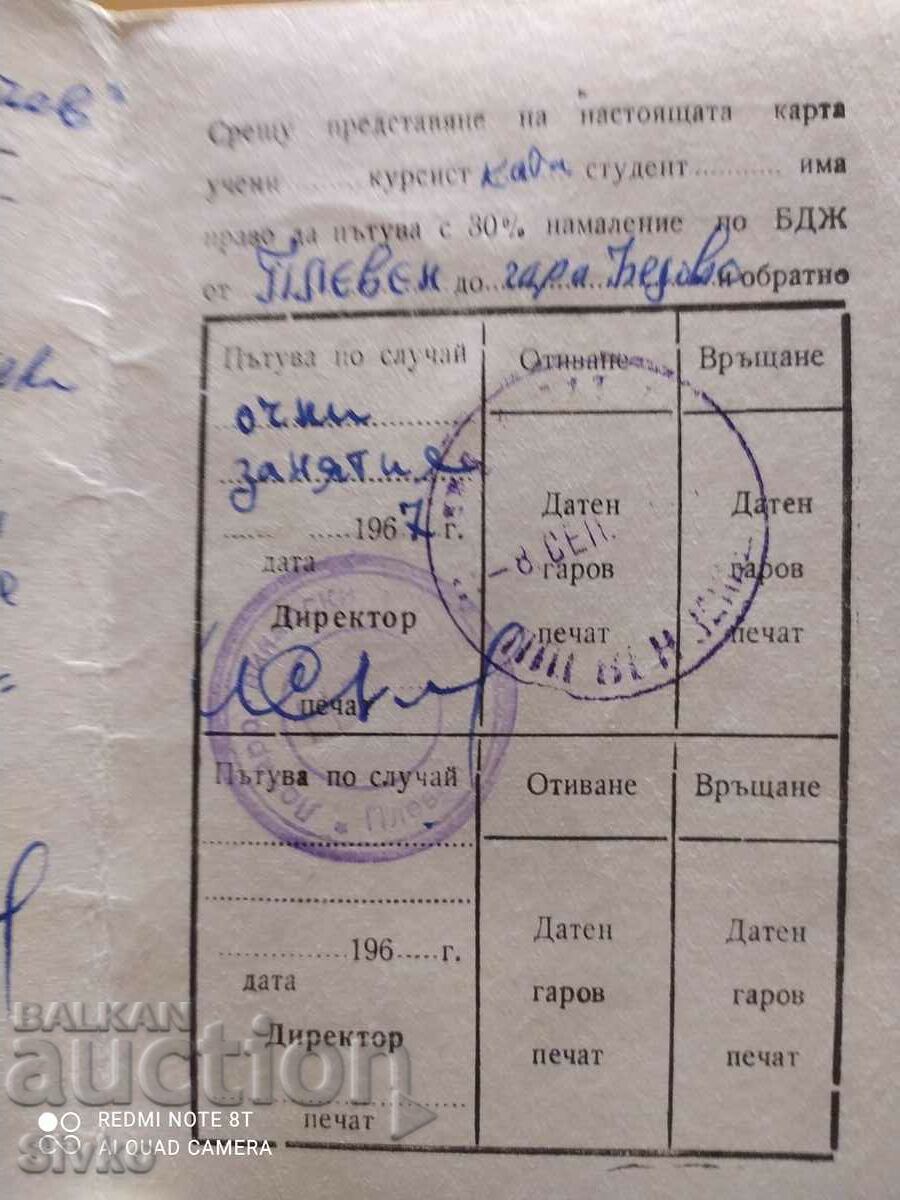 Срещу представяне на настоящата карта
учени ......... курсист ......... студент ........... има
право да пътува с 30% намаление по БДЖ
от ПЛЕВЕН до гара и обратно
Пътува по случай
очни
занятия
1967 г.
дата
Директор
печат
Отиване
Датен
гаров
печат
Връщане
Датен
гаров
печат
-8 СЕП.
Плев
Пътува по случай
196 г.
дата
Директор
печат
Отиване
Датен
гаров
печат
Връщане
Датен
гаров
печат
BALKAN
auction
REDMI NOTE 8T
AI QUAD CAMERA
Sivko